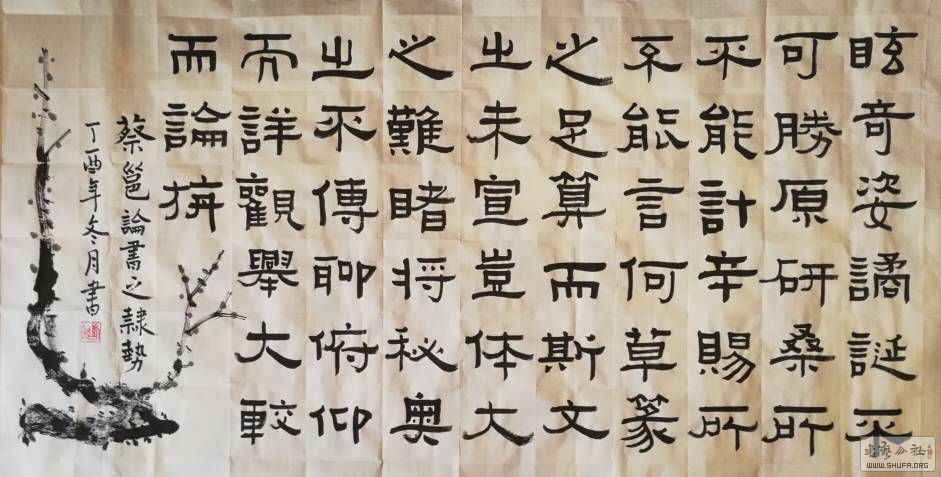 眩奇姿譎誕不
可勝原研桑所
不能計辛賜所
不能言何草篆
之足算而斯文
之未宣豈体大
之難睹将秘奥
之不傳聊俯仰
而詳觀舉大較
而論旃
蔡邕論書之隸勢
丁酉年冬月書
WWW.SHUFA.ORG